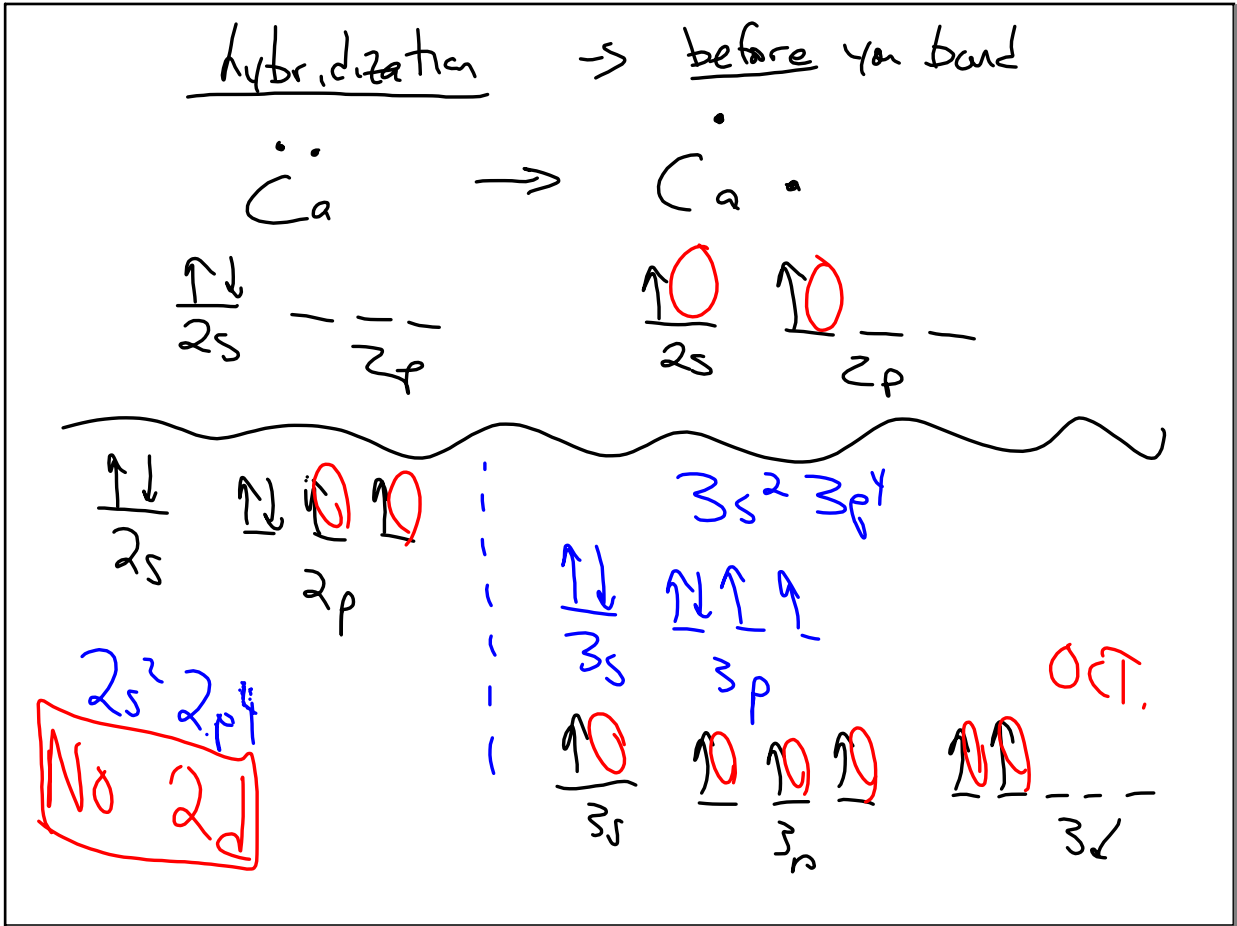 hybridization → before you bond
Ca → Ca
↑↓ ↑ ↑
2s 2p 2s 2p
↑↓ ↑↓ ↑ ↑
2s 2p
2s² 2p⁴
No 2d
3s² 3p⁴
↑↓ ↑↓ ↑ ↑
3s 3p
OCT.
↑ ↑ ↑ ↑ ↑ ↑
3s 3p 3d